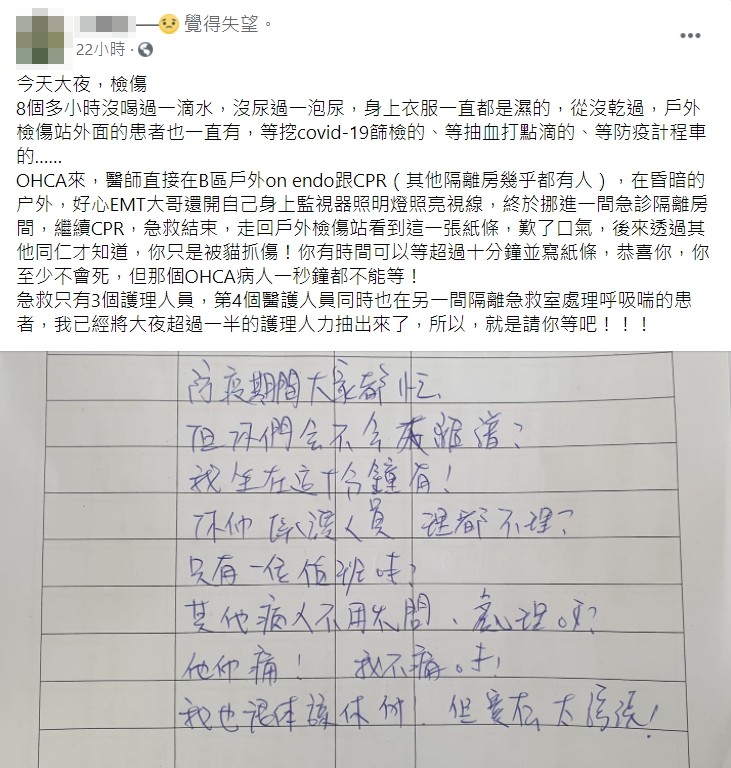 — 覺得失望。
22小時 ·
今天大夜，檢傷
8個多小時沒喝過一滴水，沒尿過一泡尿，身上衣服一直都是濕的，從沒乾過，戶外
檢傷站外面的患者也一直有，等挖covid-19篩檢的、等抽血打點滴的、等防疫計程車
的......
OHCA來，醫師直接在B區戶外on endo跟CPR（其他隔離房幾乎都有人），在昏暗的
户外，好心EMT大哥還開自己身上監視器照明燈照亮視線，終於挪進一間急診隔離房
間，繼續CPR，急救結束，走回戶外檢傷站看到這一張紙條，歎了口氣，後來透過其
他同仁才知道，你只是被貓抓傷！你有時間可以等超過十分鐘並寫紙條，恭喜你，你
至少不會死，但那個OHCA病人一秒鐘都不能等！
急救只有3個護理人員，第4個醫護人員同時也在另一間隔離急救室處理呼吸喘的患
者，我已經將大夜超過一半的護理人力抽出來了，所以，就是請你等吧！！！
防疫期間大家都忙
但你們会不会太離譜？
我坐在這十分鐘有！
你们医護人員 理都不理？
只有一位值班哇？
其他病人不用太問、處理吗？
他们痛！ 我不痛吗！
我也課体諒休们！但實在太誇張！